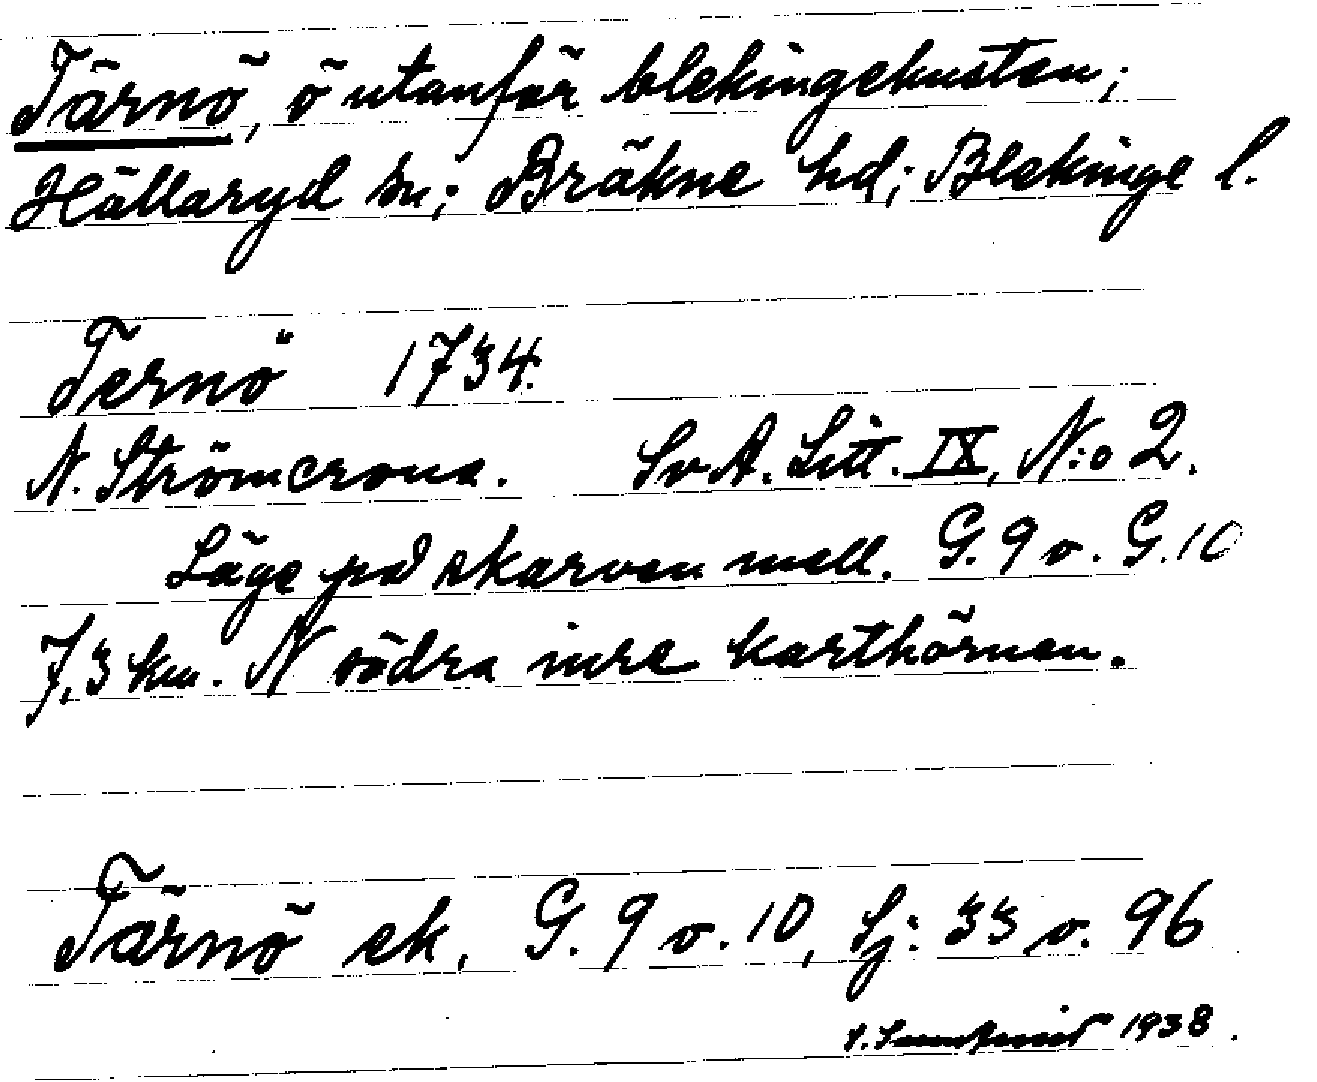 Tärnö, ö utanför blekingekusten;
Hällaryd sn; Bräkne hd; Blekinge l.
Ternö 1734.
N. Strömcrona. Sv. A. Litt. IX, N:o 2.
Läge på skarven mell. G. 9 o. G. 10
7,3 km. N södra inre karthörnen.
Tärnö ek. G. 9 o. 10, Sj: 33 o. 96
1938.